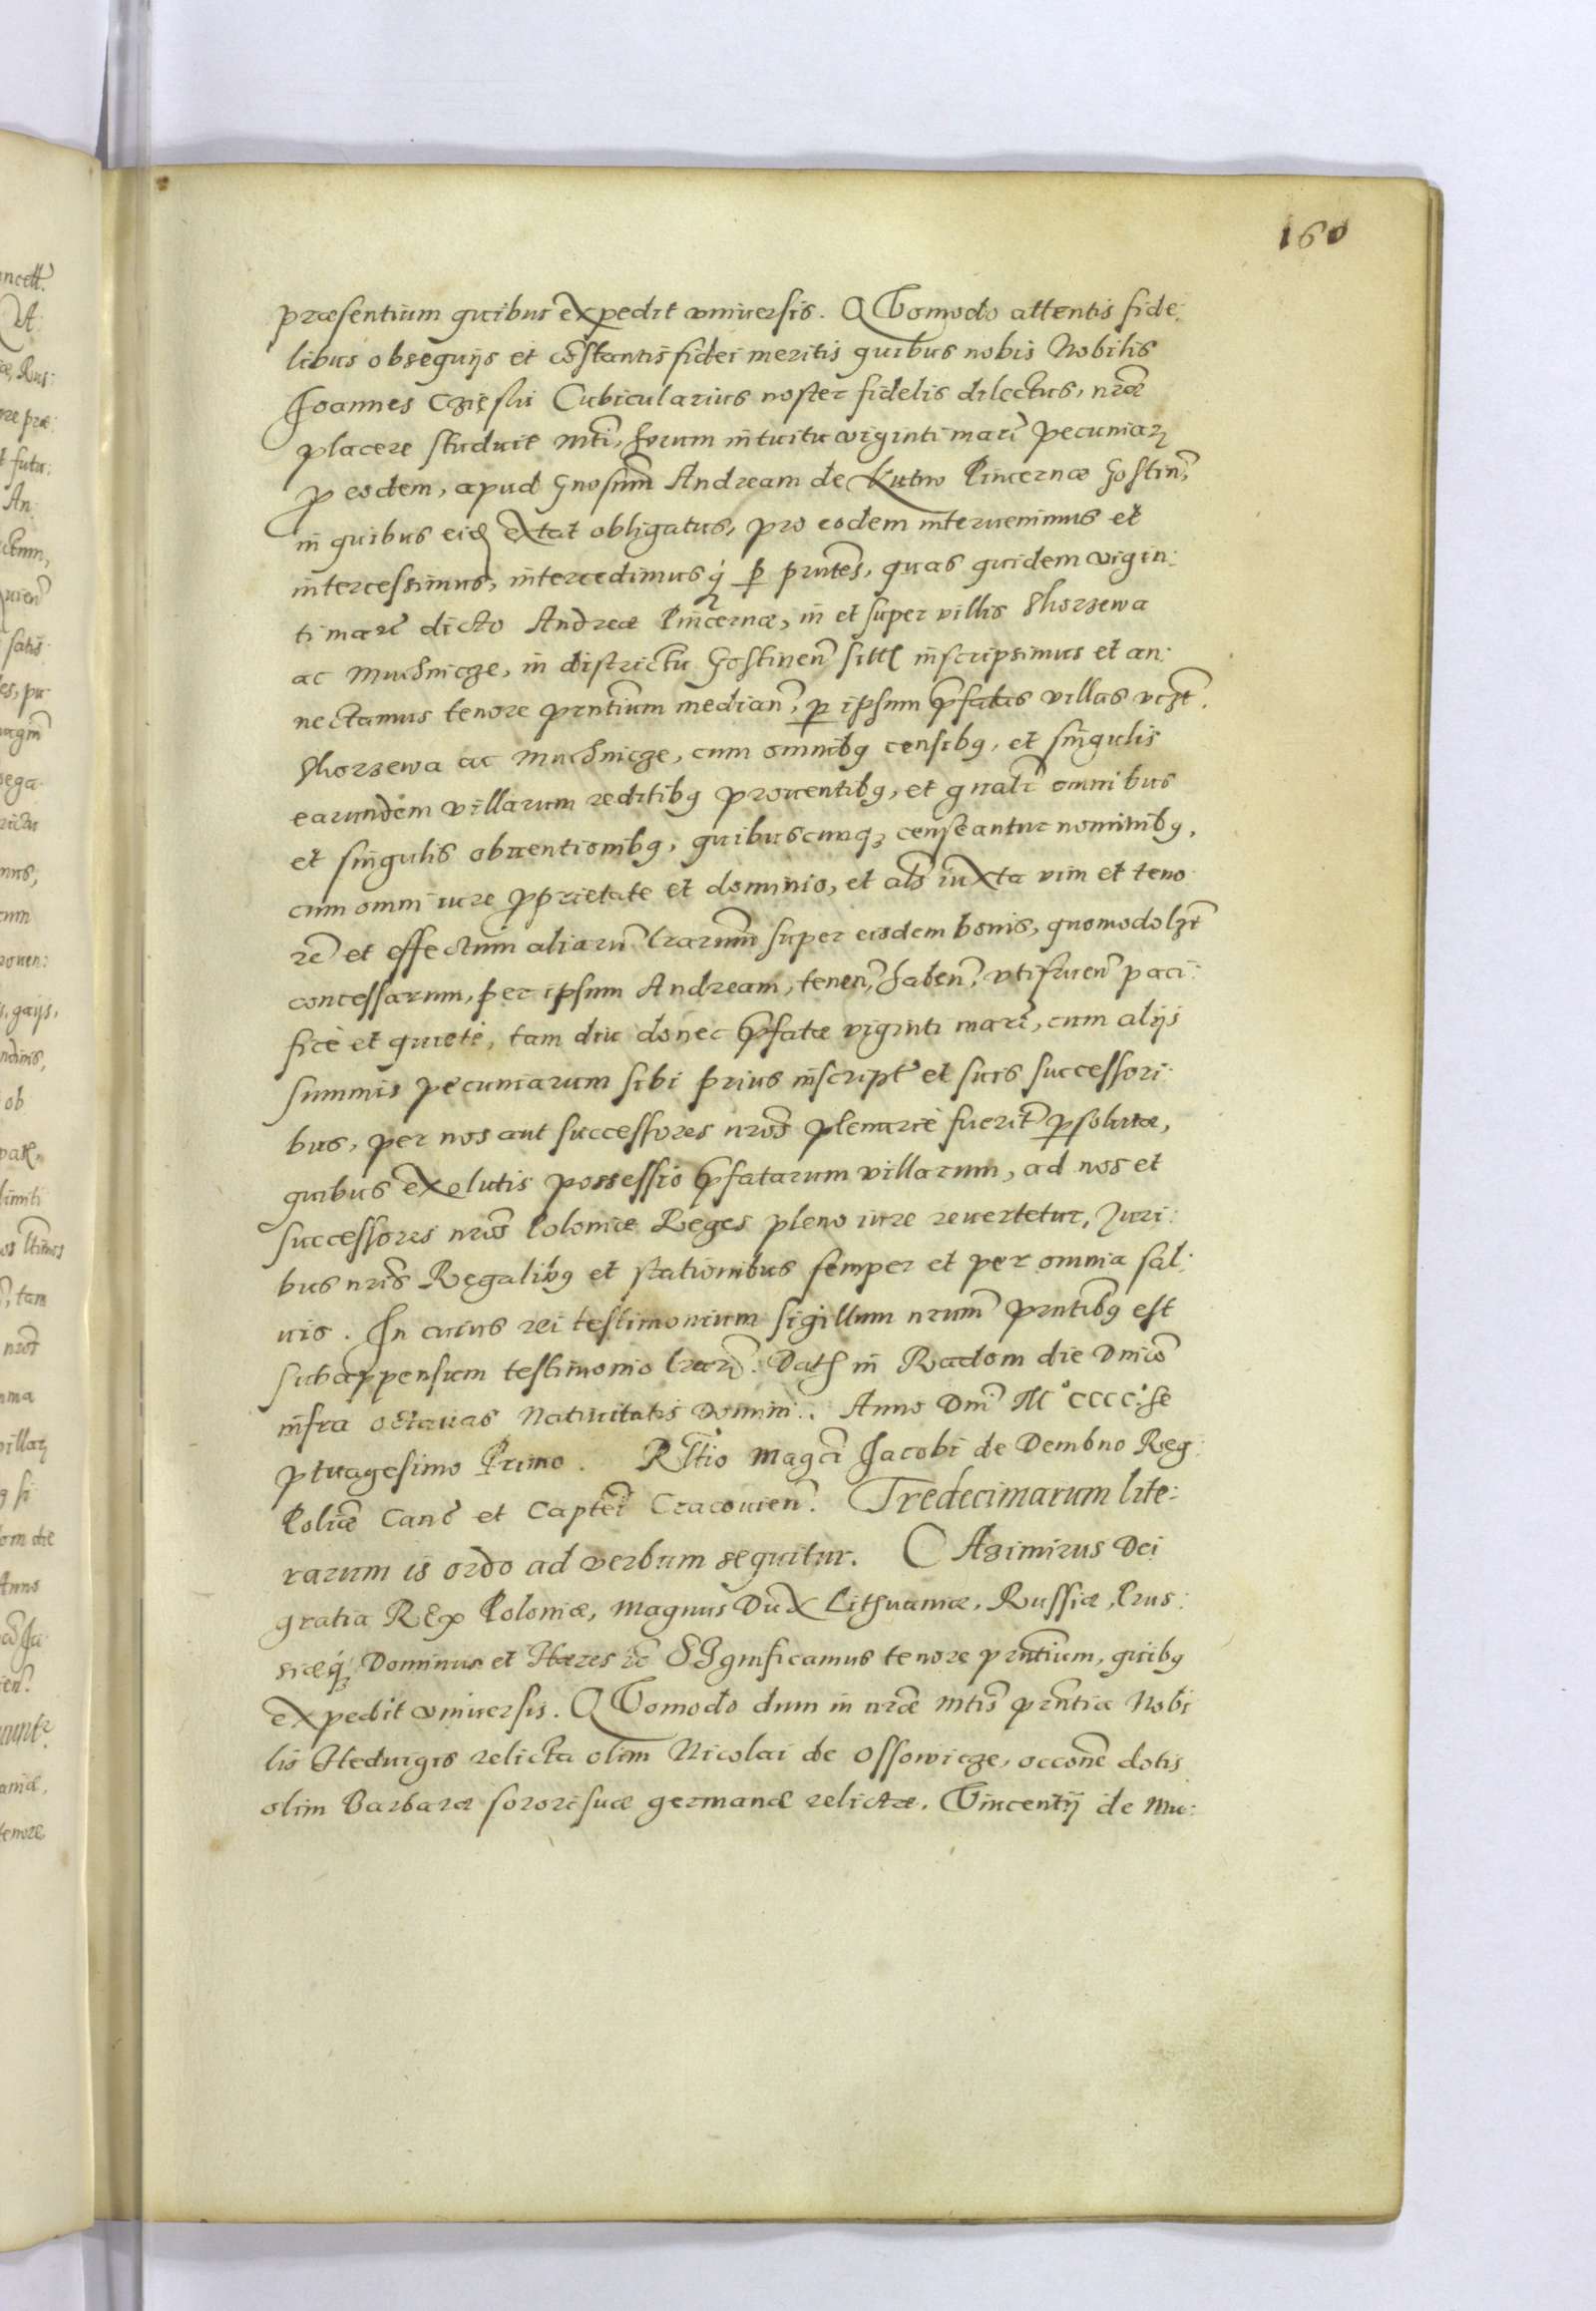 160
præsentium quibus expedit vniuersis. QVomodo attentis fide:
libus obsequijs et cõstantis fidei meritis quibus nobis Nobilis
Joannes Czięslui Cubicularius noster fidelis dilectus, nr̃æ
placere studuit Mti, horum intuitu viginti marc̃ pecuniarȝ
ꝓ eodem, apud Gnosum̃ Andream de Kutno Pincernæ Gostin̄,
in quibus eid extat obligatus, pro eodem interuenimus et
intercessimus, intercedimusq́ꝫ ꝑ prñtes, quas quidem vigin:
ti marc̃ dicto Andreæ Pincernæ, in et super villis Shorzewa
ac Muchnicze, in districtu Gostinen̄ sittɭ inscripsimus et an:
nectamus tenore prñtium median̄, ꝑ ipsum p̃fatas villas vizt̃.
Shorzewa ac Muchnicze, cum omnibꝰ censibꝰ, et singulis
earundem villarum reditibꝰ prouentibꝰ, et gnalr̃ omnibus
et singulis obuentionibꝰ, quibuscunqꝫ censeantur nominibꝰ,
cum omni iure ꝓprietate et dominio, et als̃ iuxta vim et teno
rẽ et effectum aliarũ lrarum̃ super eisdem bonis, quomodolzt̃
concessarum, per ipsum Andream, tenen̄, haben̄, vtifruen̄ paci:
ficè et quietè, tam diu donec p̃fatæ viginti marc̃, cum alijs
summis pecuniarum sibi prius inscript̃ et suis successori:
bus, per nos aut successores nros̃ plenariè fuerit̃ ꝑsolutæ,
quibus exolutis possessio p̃fatarum villarum, ad nos et
successores nros̃ Poloniæ Reges pleno iure reuertetur, Juri:
bus nris̃ Regalibꝰ et stationibus semper et per omnia sal:
uis. In cuius rei testimonium sigillum nrum̃ prñtibꝰ est
subappensum testimonio lrarꝫ. Datꝫ in Radom die Dnico̅
infra octauas Natiuitatis Domini. Anno Dni̅ M° CCCC°. se
ptuagesimo Primo. Rl̃tio Magci̅ Jacobi de Dembno Reg:
Poliæ̃ Canc̃ et Capteĩ Cracouien̄. Tredecimarum lite:
rarum is ordo ad verbum sequitur. CAsimirus Dei
gratia REx Poloniæ, Magnus Dux Lithuaniæ, Russiæ, Prus:
siæq́ꝫ Dominus et Hæres rc̃ SIgnificamus tenore prñtium, quibꝰ
expedit vniuersis. QVomodo dum in nræ̃ Mtis̃ prñtia Nobi
lis Heduigis relicta olim Nicolai de Ossowicze, occone̅ dotis
olim Barbaræ sororis suæ germanæ relictæ. Vincentij de Mu: